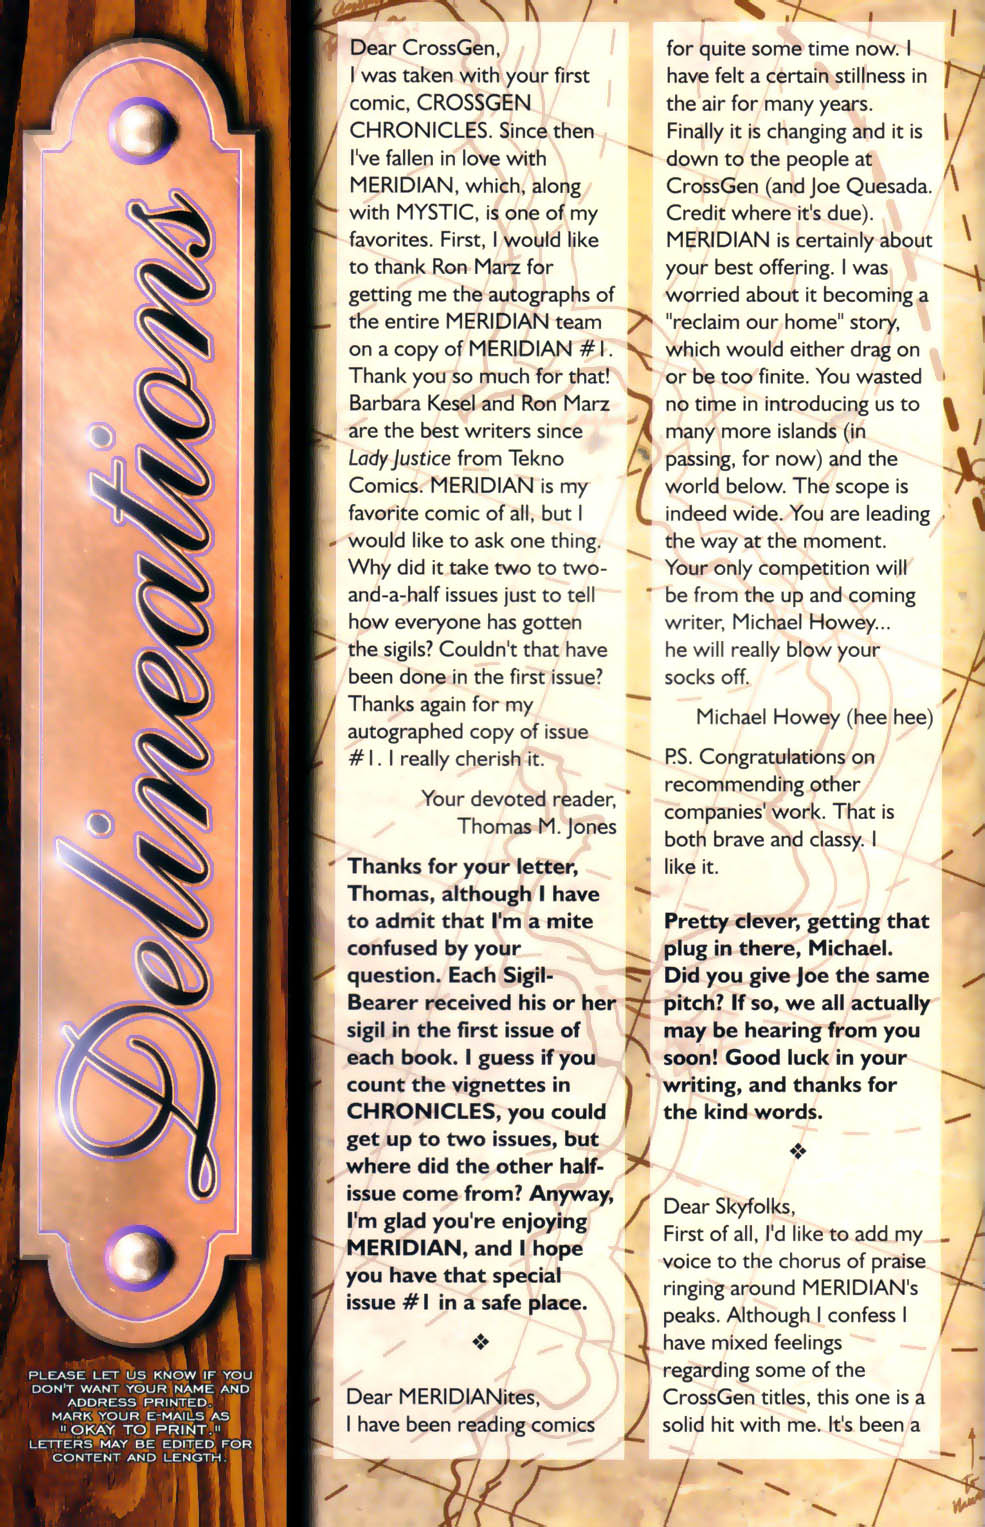 Delineations
PLEASE LET US KNOW IF YOU
DON'T WANT YOUR NAME AND
ADDRESS PRINTED.
MARK YOUR E-MAILS AS
"OKAY TO PRINT."
LETTERS MAY BE EDITED FOR
CONTENT AND LENGTH.
Dear CrossGen,
I was taken with your first
comic, CROSSGEN
CHRONICLES. Since then
I've fallen in love with
MERIDIAN, which, along
with MYSTIC, is one of my
favorites. First, I would like
to thank Ron Marz for
getting me the autographs of
the entire MERIDIAN team
on a copy of MERIDIAN #1.
Thank you so much for that!
Barbara Kesel and Ron Marz
are the best writers since
Lady Justice from Tekno
Comics. MERIDIAN is my
favorite comic of all, but I
would like to ask one thing.
Why did it take two to two-
and-a-half issues just to tell
how everyone has gotten
the sigils? Couldn't that have
been done in the first issue?
Thanks again for my
autographed copy of issue
#1. I really cherish it.
Your devoted reader,
Thomas M. Jones
Thanks for your letter,
Thomas, although I have
to admit that I'm a mite
confused by your
question. Each Sigil-
Bearer received his or her
sigil in the first issue of
each book. I guess if you
count the vignettes in
CHRONICLES, you could
get up to two issues, but
where did the other half-
issue come from? Anyway,
I'm glad you're enjoying
MERIDIAN, and I hope
you have that special
issue #1 in a safe place.
Dear MERIDIANites,
I have been reading comics
for quite some time now. I
have felt a certain stillness in
the air for many years.
Finally it is changing and it is
down to the people at
CrossGen (and Joe Quesada.
Credit where it's due).
MERIDIAN is certainly about
your best offering. I was
worried about it becoming a
"reclaim our home" story,
which would either drag on
or be too finite. You wasted
no time in introducing us to
many more islands (in
passing, for now) and the
world below. The scope is
indeed wide. You are leading
the way at the moment.
Your only competition will
be from the up and coming
writer, Michael Howey...
he will really blow your
socks off.
Michael Howey (hee hee)
P.S. Congratulations on
recommending other
companies' work. That is
both brave and classy. I
like it.
Pretty clever, getting that
plug in there, Michael.
Did you give Joe the same
pitch? If so, we all actually
may be hearing from you
soon! Good luck in your
writing, and thanks for
the kind words.
Dear Skyfolks,
First of all, I'd like to add my
voice to the chorus of praise
ringing around MERIDIAN's
peaks. Although I confess I
have mixed feelings
regarding some of the
CrossGen titles, this one is a
solid hit with me. It's been a
To